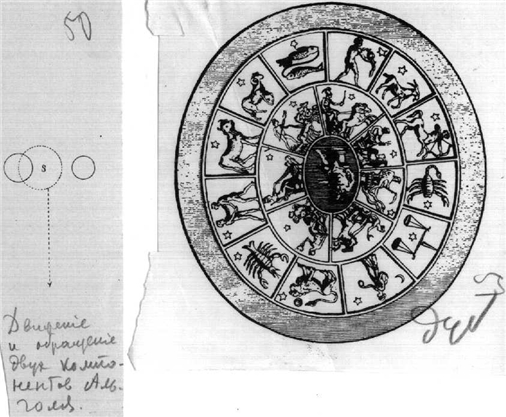 50
s
Движение
и обращение
двух компо-
нентов Аль-
голя.